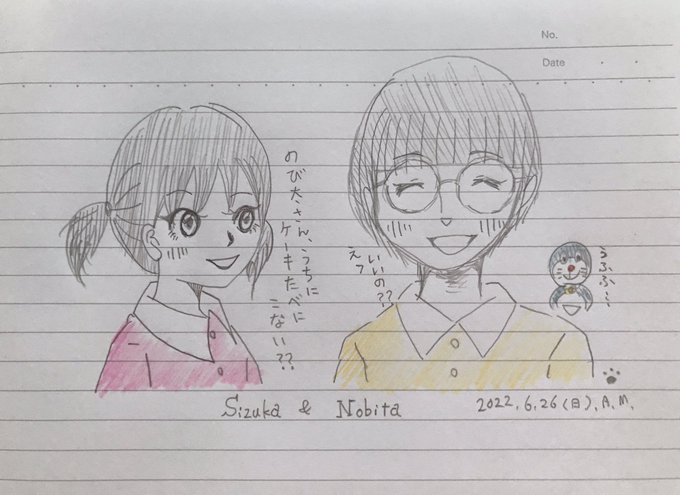 No.
Date
のび太さん、うちに
ケーキたべに
こない??
えっ
いいの??
うふふ…
Sizuka & Nobita
2022.6.26(日).A.M.